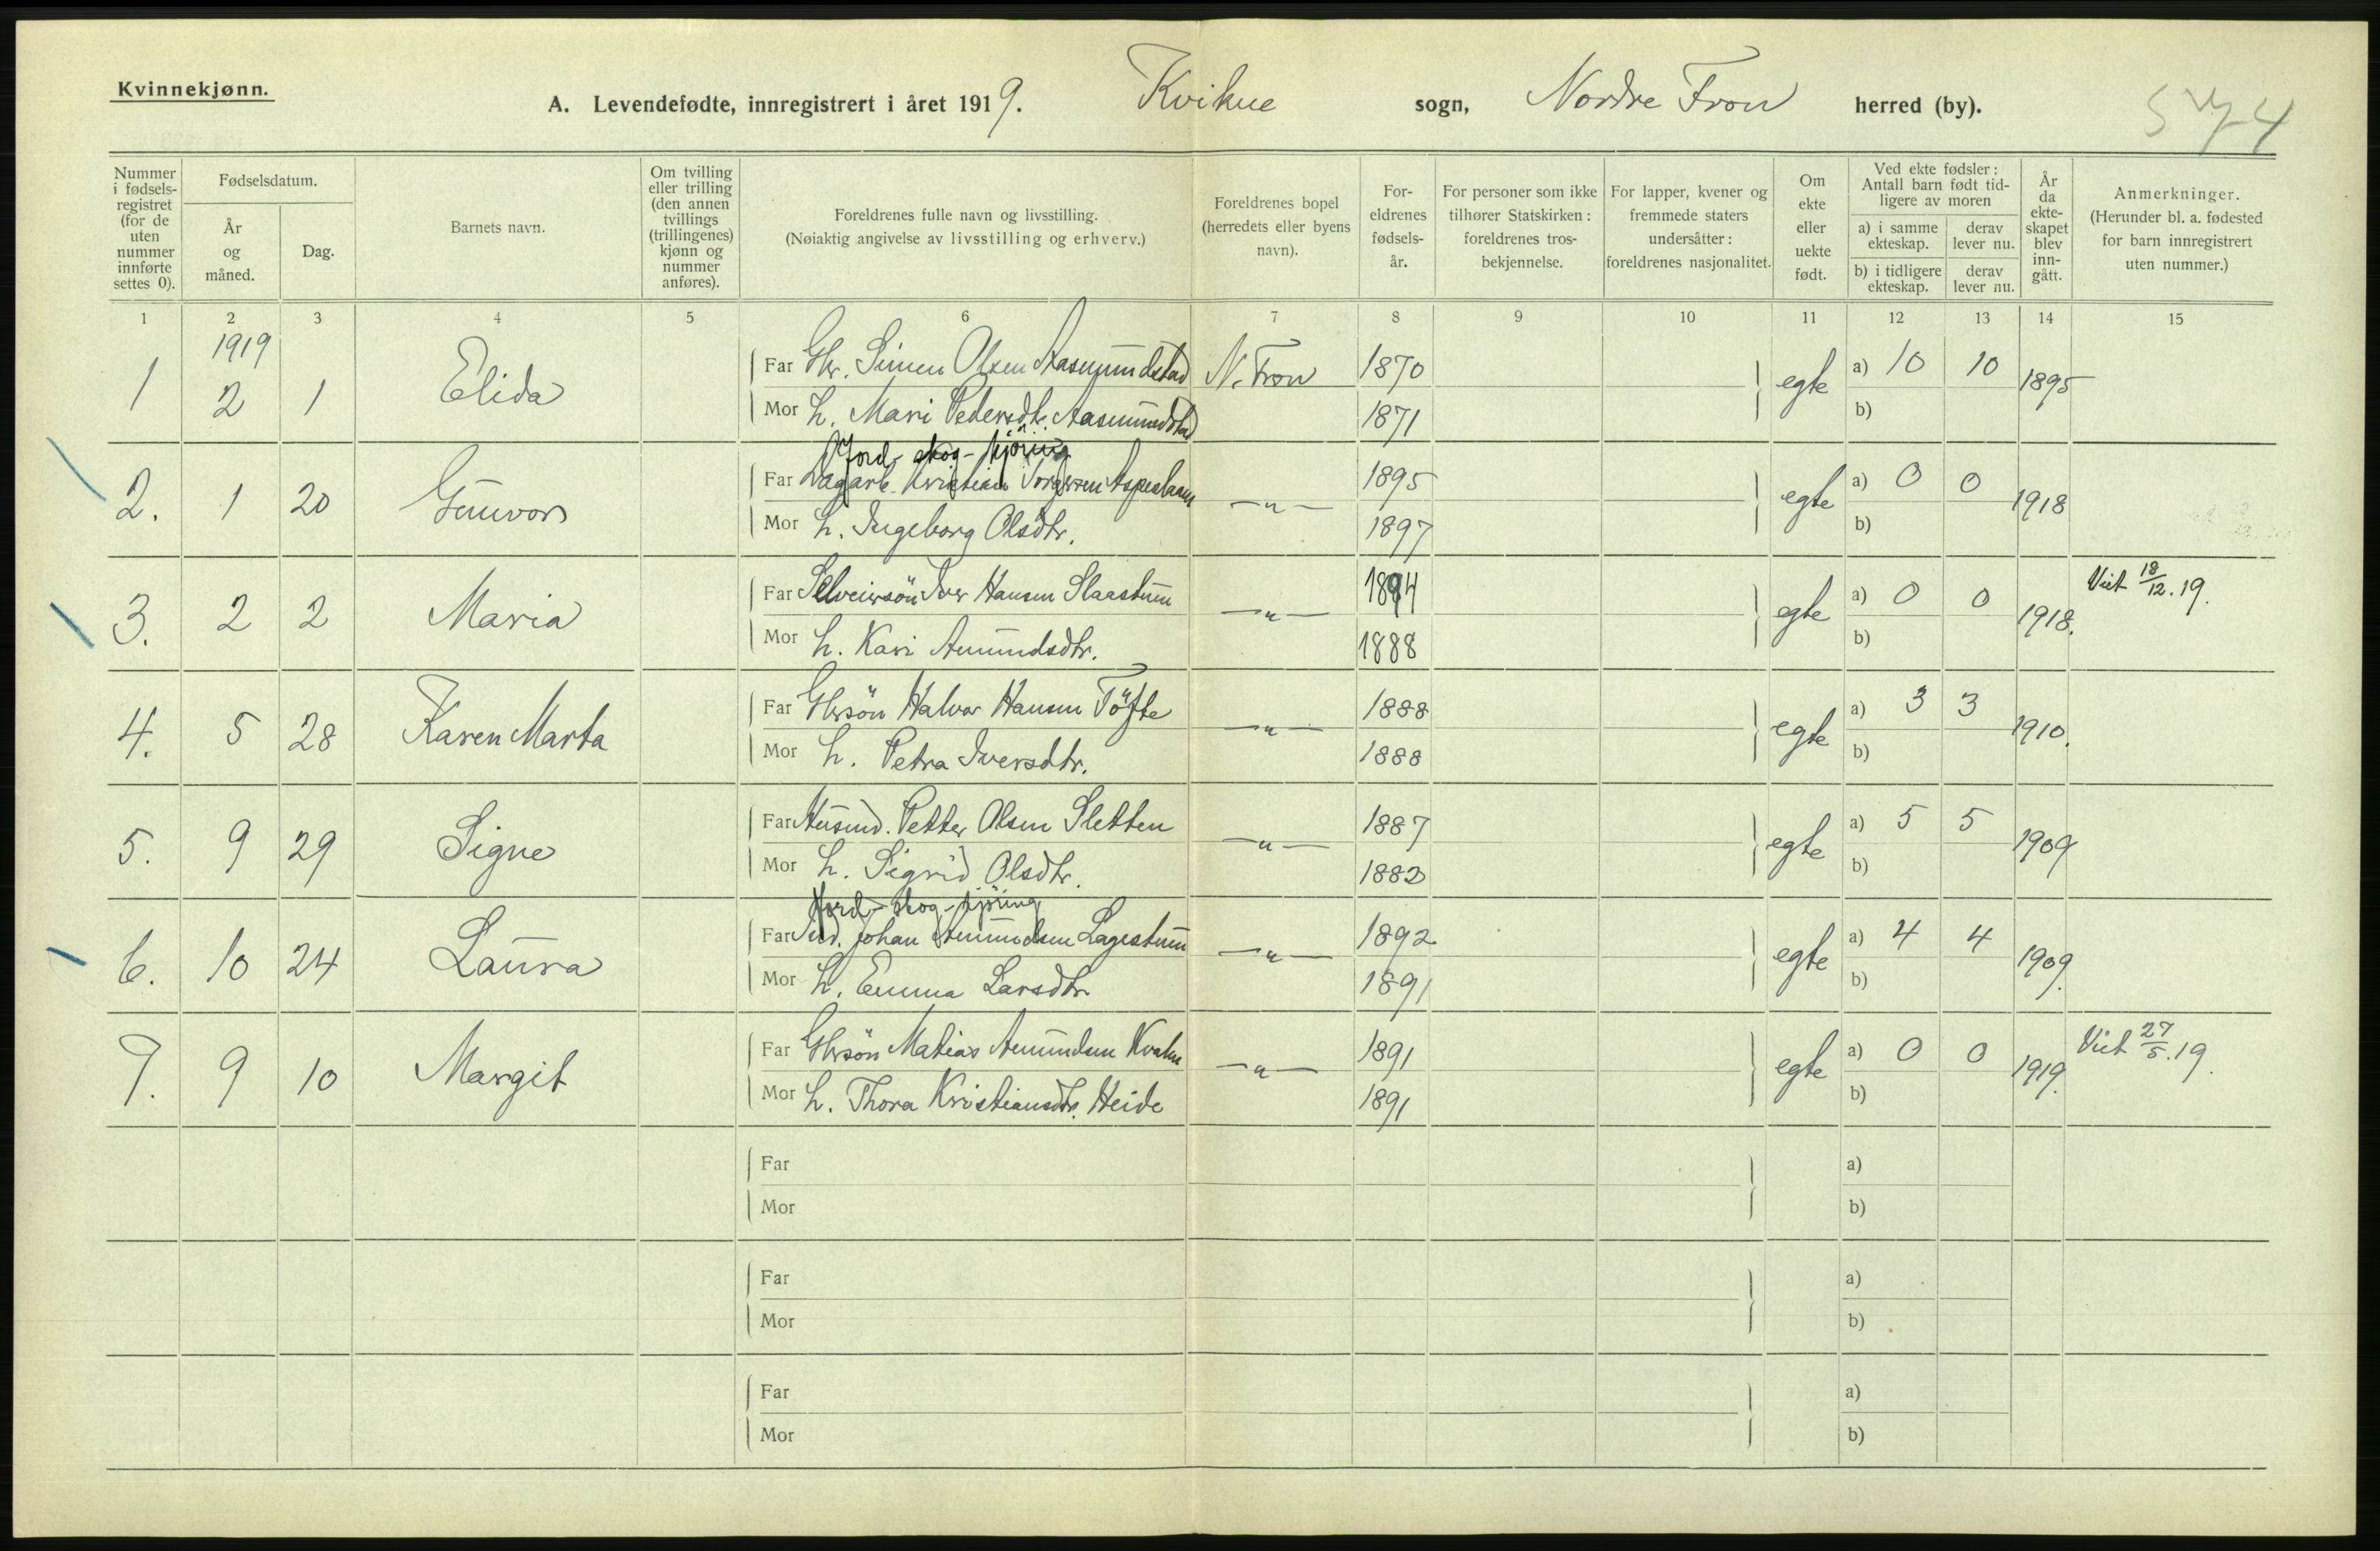 Kvinnekjønn.
A. Levendefødte, innregistrert i året 1919. Kvikne sogn, Nordre Fron herred (by).
Nummer i fødsels-registret (for de uten nummer innførte settes 0).
Fødselsdatum.
År og måned.
Dag.
Barnets navn.
Om tvilling eller trilling (den annen tvillings (trillingenes) kjønn og nummer anføres).
Foreldrenes fulle navn og livsstilling.
(Nøiaktig angivelse av livsstilling og erhverv.)
Foreldrenes bopel (herredets eller byens navn).
For-eldrenes fødsels-år.
For personer som ikke tilhører Statskirken: foreldrenes tros-bekjennelse.
For lapper, kvener og fremmede staters undersåtter: foreldrenes nasjonalitet.
Om ekte eller uekte født.
Ved ekte fødsler: Antall barn født tid-ligere av moren
a) i samme ekteskap.
derav lever nu.
b) i tidligere ekteskap.
derav lever nu.
År da ekte-skapet blev inn-gått.
Anmerkninger.
(Herunder bl. a. fødested for barn innregistrert uten nummer.)
1 2 3 4 5 6 7 8 9 10 11 12 13 14 15
1919
1 2 1 Elida Far Gbr. Simen Olsen Aasmundstad N. Fron 1870 egte a) 10 10 1895
Mor h. Mari Pedersdtr. Aasmundstad 1871 b)
Jord- skog- kjöring
2. 1 20 Gunvor Far Dagarb. Kristian Torgersen — " — 1895 egte a) 0 0 1918
Mor h. Ingeborg Olsdtr. 1897 b)
3. 2 2 Maria Far Selveiersön Iver Hansen Slaastuen — " — 1894 egte a) 0 0 1918. Viet 18/12.19.
Mor h. Kari Amundsdtr. 1888 b)
4. 5 28 Karen Marta Far Gbrsön Halvor Hansen Töfte — " — 1888 egte a) 3 3 1910.
Mor h. Petra Iversdtr. 1888 b)
5. 9 29 Signe Far Husmd. Petter Olsen Sletten — " — 1887 egte a) 5 5 1909
Mor h. Sigrid Olsdtr. 1882 b)
Jord- skog- kjöring
6. 10 24 Laura Far Johan Amundsen Lagestuen — " — 1892 egte a) 4 4 1909.
Mor h. Emma Larsdtr. 1891 b)
7. 9 10 Margit Far Gbrsön Matias Amundsen — " — 1891 egte a) 0 0 1919. Viet 27/5.19.
Mor h. Thora Kristiansdtr. Heide 1891 b)
Far a)
Mor b)
Far a)
Mor b)
Far a)
Mor b)